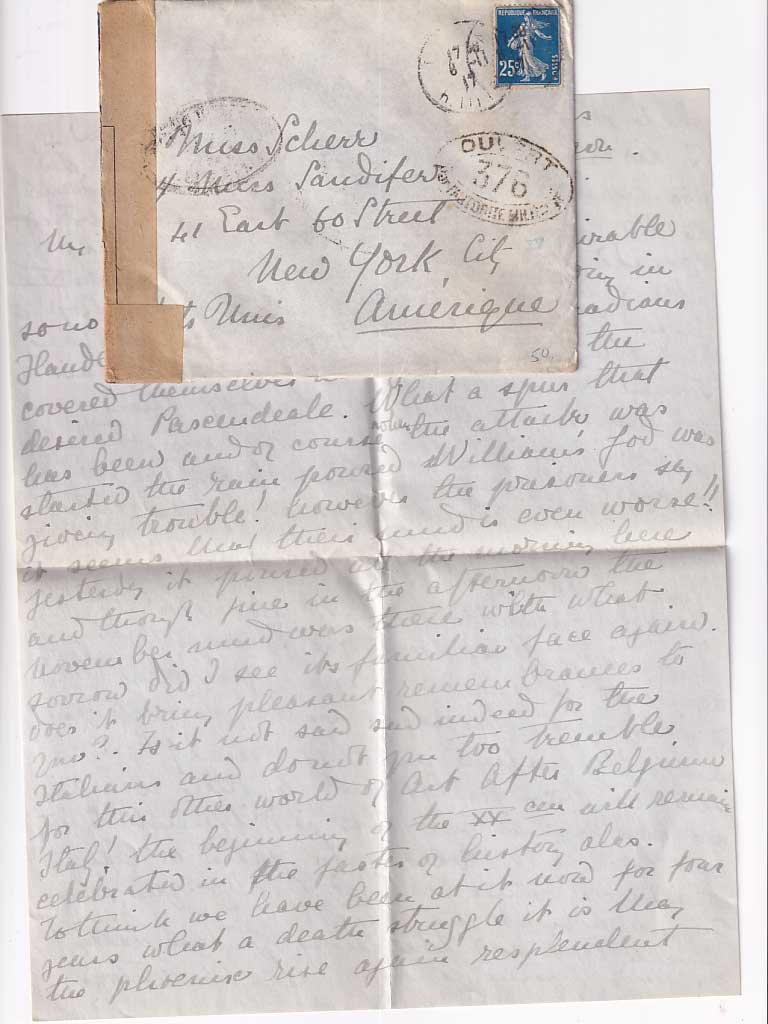 REPUBLIQUE FRANÇAISE
25c POSTES
17
OUVERT
376
PAR L'AUTORITE MILITAIRE
Miss Scherr
Miss Sandifer
41 East 60 Street
New York City
Unis Amérique
50
My
in
the
covered themselves
desired Pascendeale. What a spur that
has been and of course when the attack was
started the rain poured William's God was
giving trouble! however the prisoners say
it seems that their mud is even worse!!
yesterday it poured all the morning here
and though fine in the afternoon the
november mud was there with what
sorrow did I see its familiar face again.
does it bring pleasant remembrances to
you? Is it not sad sad indeed for the
Italians and do not you too tremble
for this other world of Art After Belgium
Italy! the beginning of the XX cen will remain
celebrated in the fastes of history alas.
To think we have been at it now for four
years what a death struggle it is may
the phoenix rise again resplendent